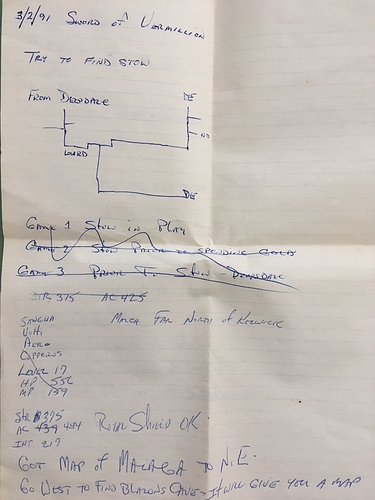 3/2/91 Sword of Vermillion
Try to Find Stow
From Deepdale
DE
NO
Guard
DE
Game 1 Stow in Play
Game 2 Stow Prior to spending Gold
Game 3 Prior To Stow - Deepdale
STR 375 AC 425
Sangua
Malga Far North of Keltwick
Volti
Aero
Copperos
Level 17
HP 556
MP 159
Str 375
AC 439 484 Royal Shield OK
INT 217
Got Map of Malaga to N.E.
Go West to Find Blazons Cave - It will give you a map